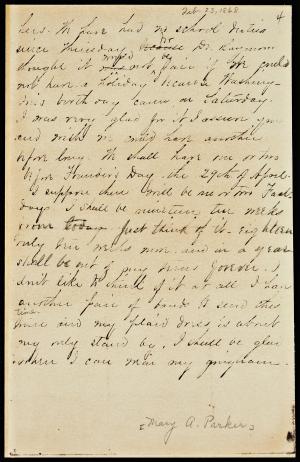 Feb. 23, 1868
4
hers. We have had no school duties
since Thursday, because Dr. Raymond
thought it would not be fair if we could
not have a "Holiday" because Washing-
ton's birth day came on Saturday.
I was very glad for it I assure you
and wish we could have another
before long. We shall have one or two
before Founder's Day - the 29th of April.
I suppose there will be one or two Fast
days. I shall be nineteen, two weeks
from today. Just think of it - eighteen
only two weeks more and in a year
shall be not in my teens forever. I
don't like to think of it at all. I have
another pair of to send this
time and my plaid dress is about
my only stand by. I shall be glad
when I can wear my gingham.
[Mary A. Parker]